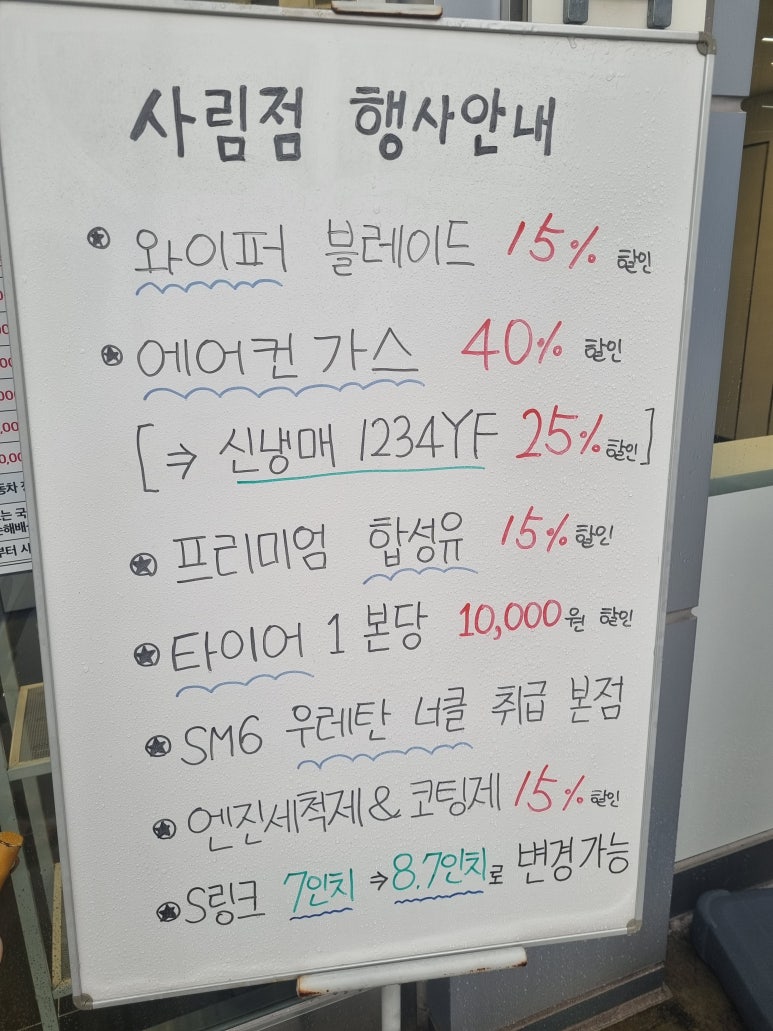 사림점 행사안내
와이퍼 블레이드 15% 할인
에어컨 가스 40% 할인
[⇒ 신냉매 1234YF 25% 할인]
프리미엄 합성유 15% 할인
타이어 1 본당 10,000원 할인
SM6 우레탄 너클 취급 본점
엔진세척제 & 코팅제 15% 할인
S링크 7인치 ⇒ 8.7인치로 변경가능